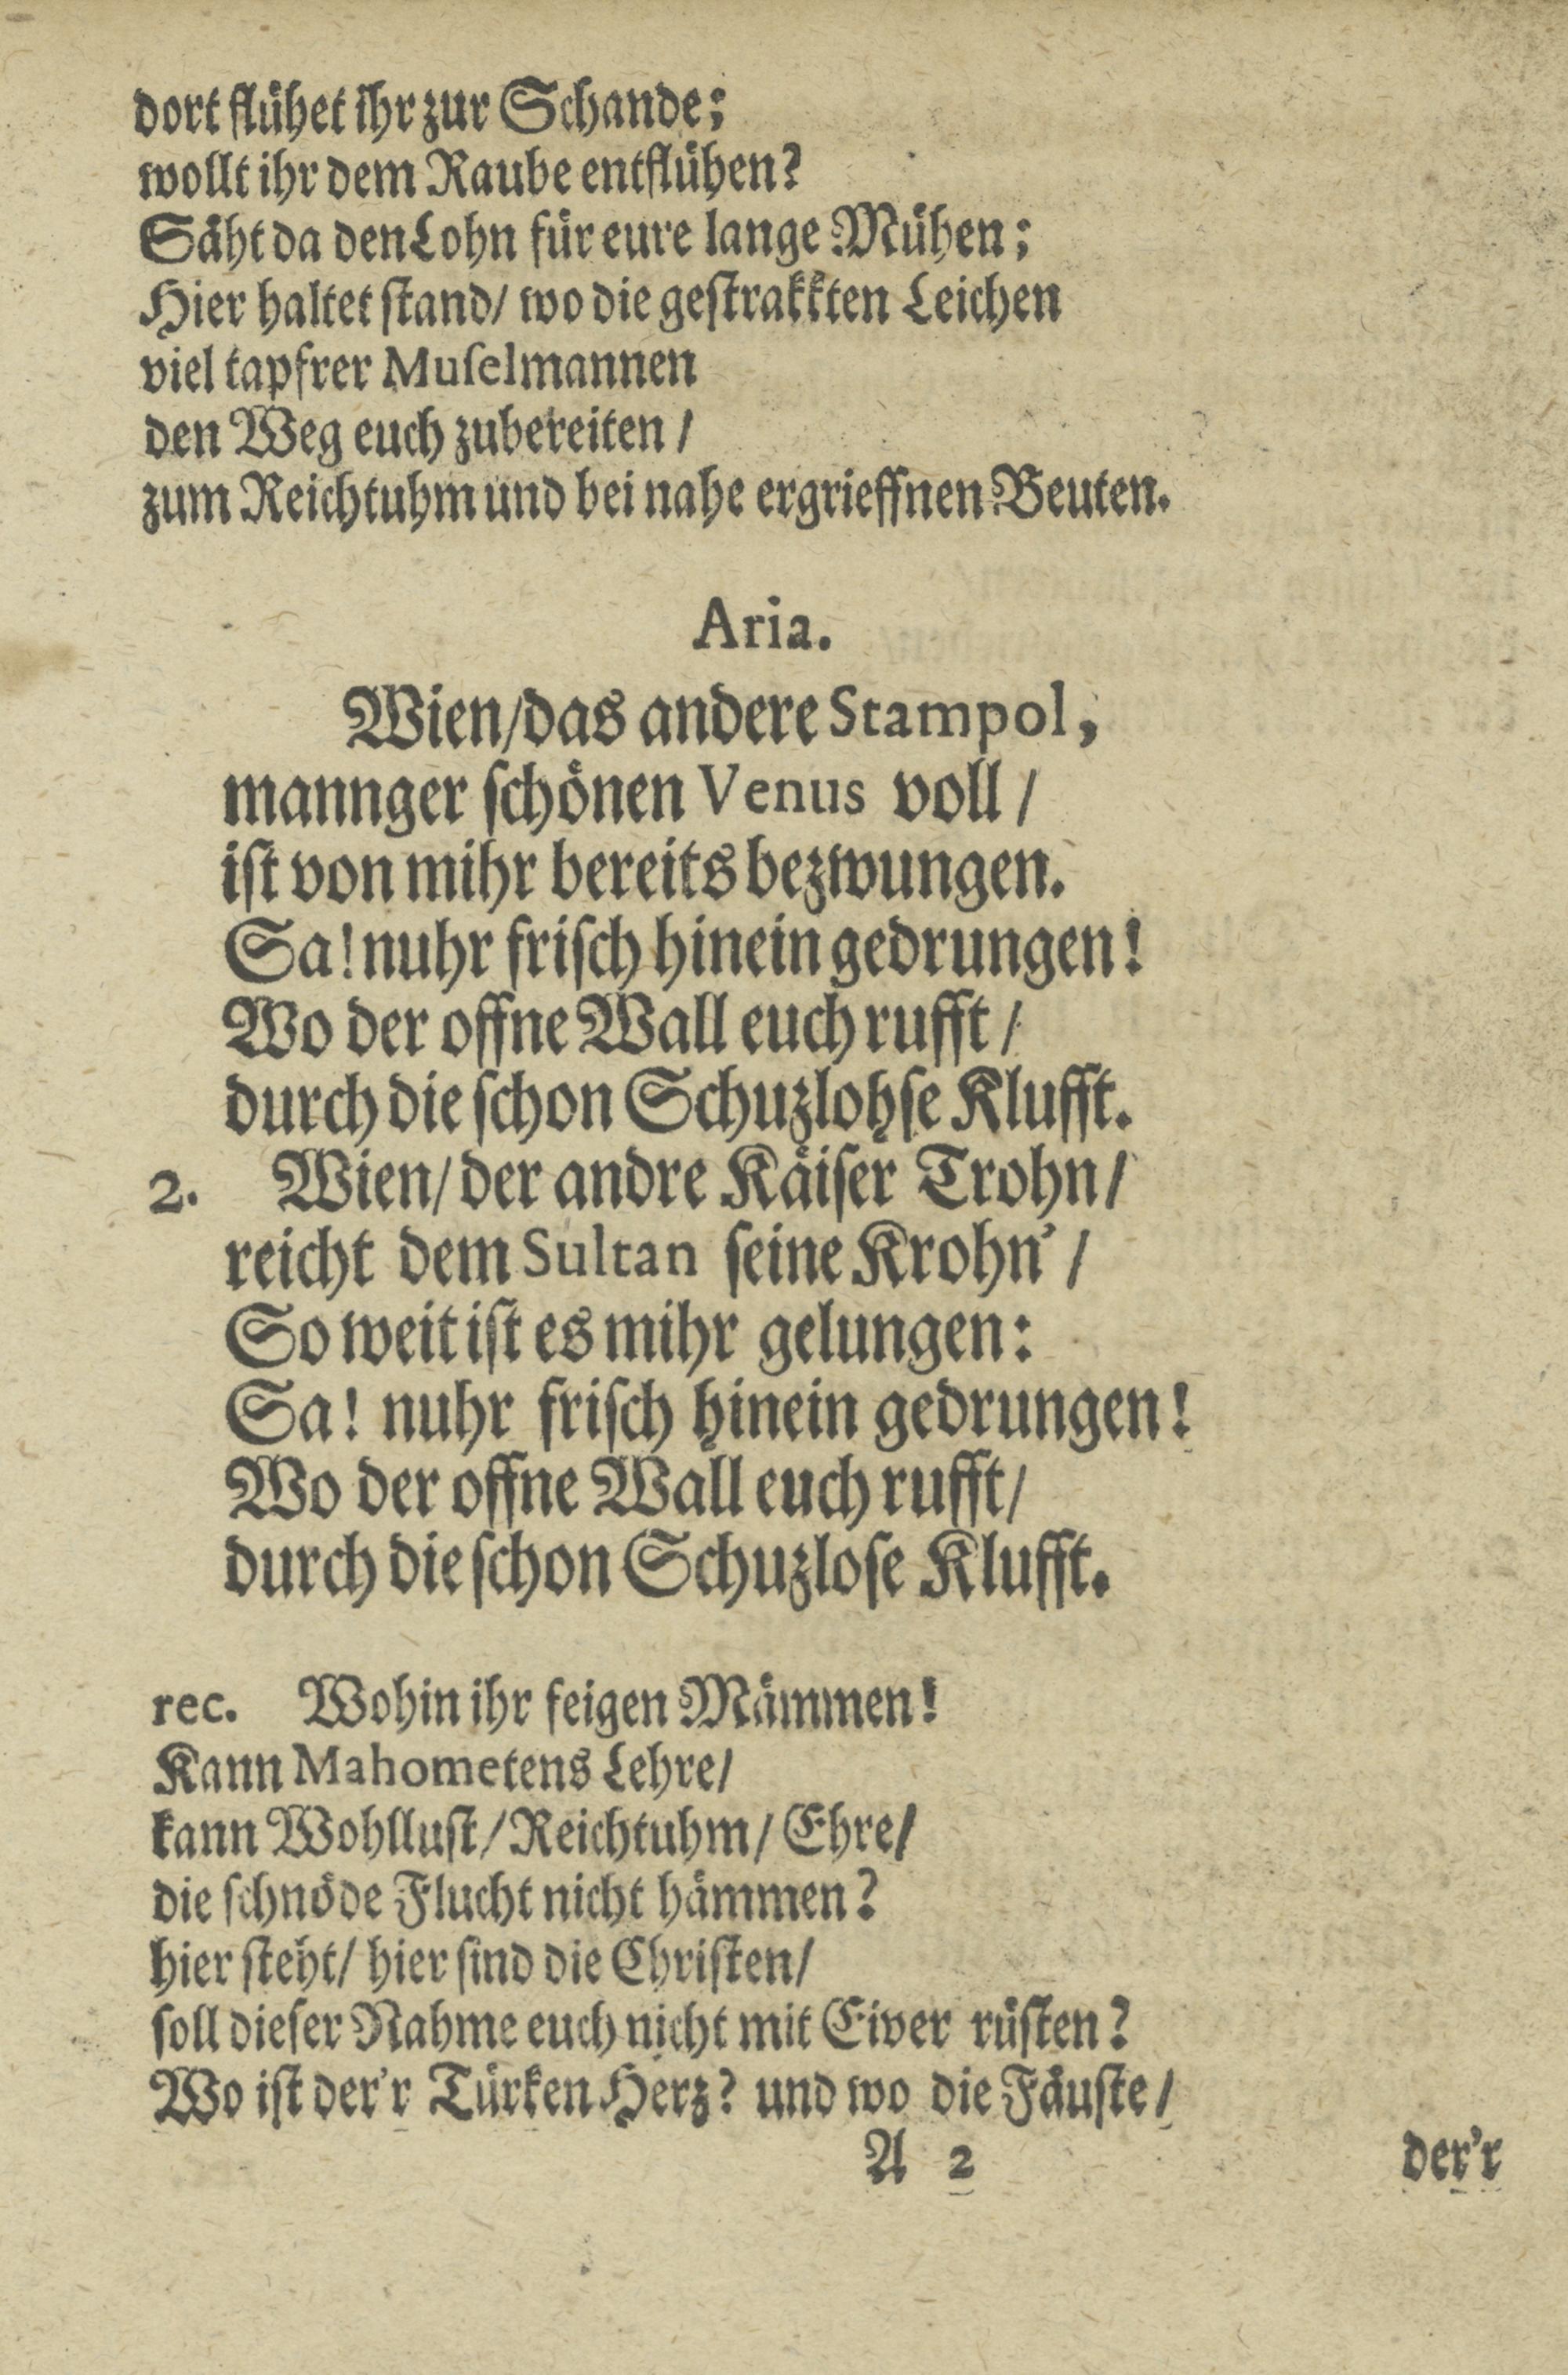 dort flühet ihr zur Schande;
wollt ihr dem Raube entflühen?
Säht da den Lohn für eure lange Mühen;
Hier haltet ſtand/ wo die geſtrakkten Leichen
viel tapfrer Muſelmannen
den Weg euch zubereiten /
zum Reichtuhm und bei nahe ergrieffnen Beuten.
Aria.
Wien/das andere Stampol,
mannger ſchönen Venus voll /
iſt von mihr bereits bezwungen.
Sa! nuhr friſch hinein gedrungen!
Wo der offne Wall euch rufft /
durch die ſchon Schuzlohſe Klufft.
2. Wien/ der andre Käiſer Trohn/
reicht dem Sultan ſeine Krohn' /
So weit iſt es mihr gelungen:
Sa! nuhr friſch hinein gedrungen!
Wo der offne Wall euch rufft/
durch die ſchon Schuzloſe Klufft.
rec. Wohin ihr feigen Mämmen!
Kann Mahometens Lehre/
kann Wohlluſt/ Reichtuhm/ Ehre/
die ſchnöde Flucht nicht hämmen?
hier ſteht/ hier ſind die Chriſten/
ſoll dieſer Nahme euch nicht mit Eiver rüſten?
Wo iſt der'r Türken Herz? und wo die Fäuſte/
A 2 der'r